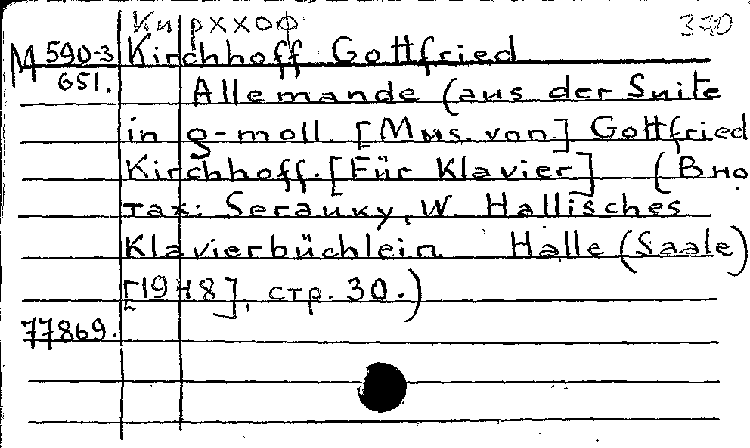 Кирххоф 330
М 590-3 Kirchhoff Gottfried
651. Allemande (aus der Suite
in g-moll. [Mus. von] Gottfried
Kirchhoff. [Für Klavier] (В но
тах: Serauky, W. Hallisches
Klavierbüchlein Halle (Saale)
[1948], стр. 30.)
77869.